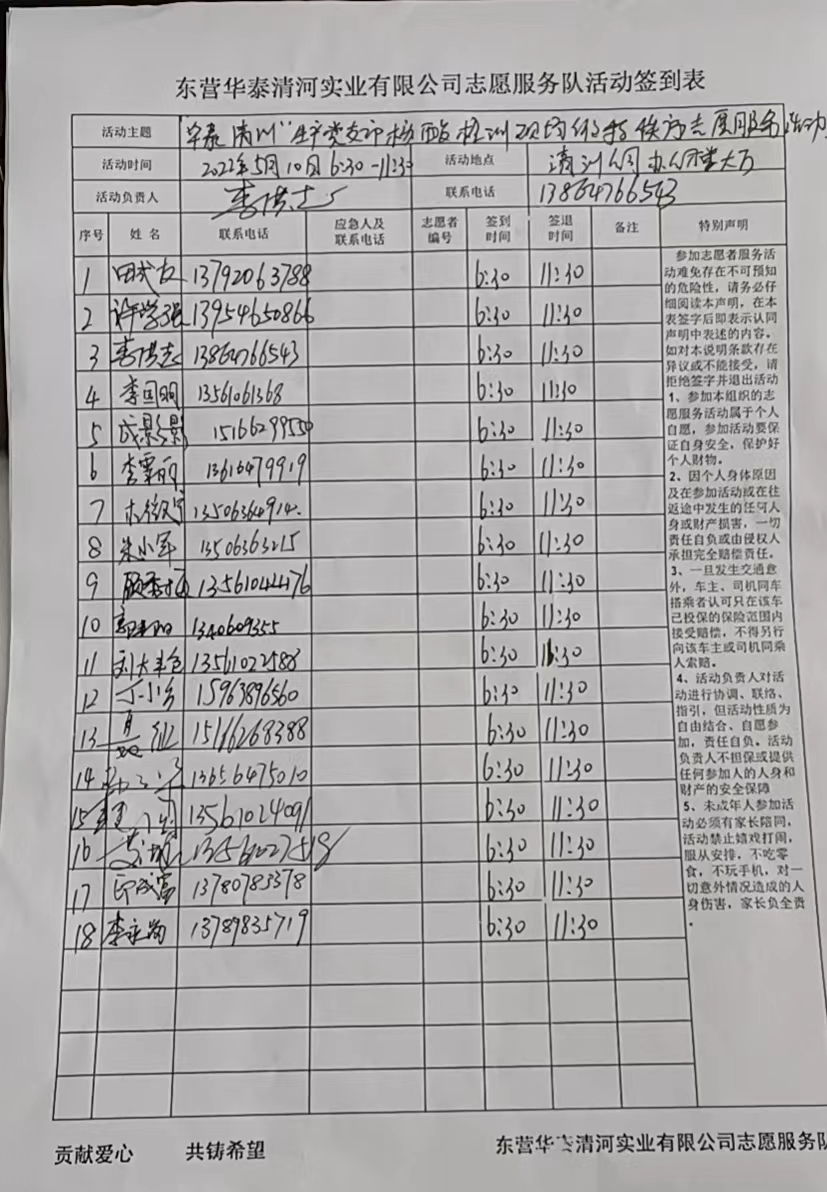 东营华泰清河实业有限公司志愿服务队活动签到表
活动主题 华泰清河"生产党支部核酸检测现场维持秩序志愿服务活动
活动时间 2022年5月10日 6:30-11:30 活动地点 清河公司办公楼大厅
活动负责人 李洪志 联系电话 13864766543
序号 姓名 联系电话 应急人及联系电话 志愿者编号 签到时间 签退时间 备注 特别声明
1 田武友 13792063788 6:30 11:30
2 许学强 13954650866 6:30 11:30
3 李洪志 13864766543 6:30 11:30
4 李国明 13561061368 6:30 11:30
5 15166299550 6:30 11:30
6 李霖丽 13616479919 6:30 11:30
7 13506364914 6:30 11:30
8 朱小军 13506363215 6:30 11:30
9 13561042476 6:30 11:30
10 1340609355 6:30 11:30
11 刘大 13561022588 6:30 11:30
12 丁小 15963896560 6:30 11:30
13 15166268388 6:30 11:30
14 13656475010 6:30 11:30
15 13561024091 6:30 11:30
16 6:30 11:30
17 印成富 13780785378 6:30 11:30
18 李 13789835719 6:30 11:30
参加志愿者服务活
动难免存在不可预知
的危险性，请务必仔
细阅读本声明，在本
表签字后即表示认同
声明中表述的内容。
如对本说明条款存在
异议或不能接受，请
拒绝签字并退出活动
1、参加本组织的志
愿服务活动属于个人
自愿，参加活动要保
证自身安全，保护好
个人财物。
2、因个人身体原因
及在参加活动或在往
返途中发生的任何人
身或财产损害，一切
责任自负或由侵权人
承担完全赔偿责任。
3、一旦发生交通意
外，车主、司机同车
搭乘者认可只在该车
已投保的保险范围内
接受赔偿，不得另行
向该车主或司机同乘
人索赔。
4、活动负责人对活
动进行协调、联络、
指引，但活动性质为
自由结合、自愿参
加，责任自负。活动
负责人不担保或提供
任何参加人的人身和
财产的安全保障
5、未成年人参加活
动必须有家长陪同，
活动禁止嬉戏打闹，
服从安排，不吃零
食，不玩手机，对一
切意外情况造成的人
身伤害，家长负全责
。
贡献爱心 共铸希望 东营华泰清河实业有限公司志愿服务队